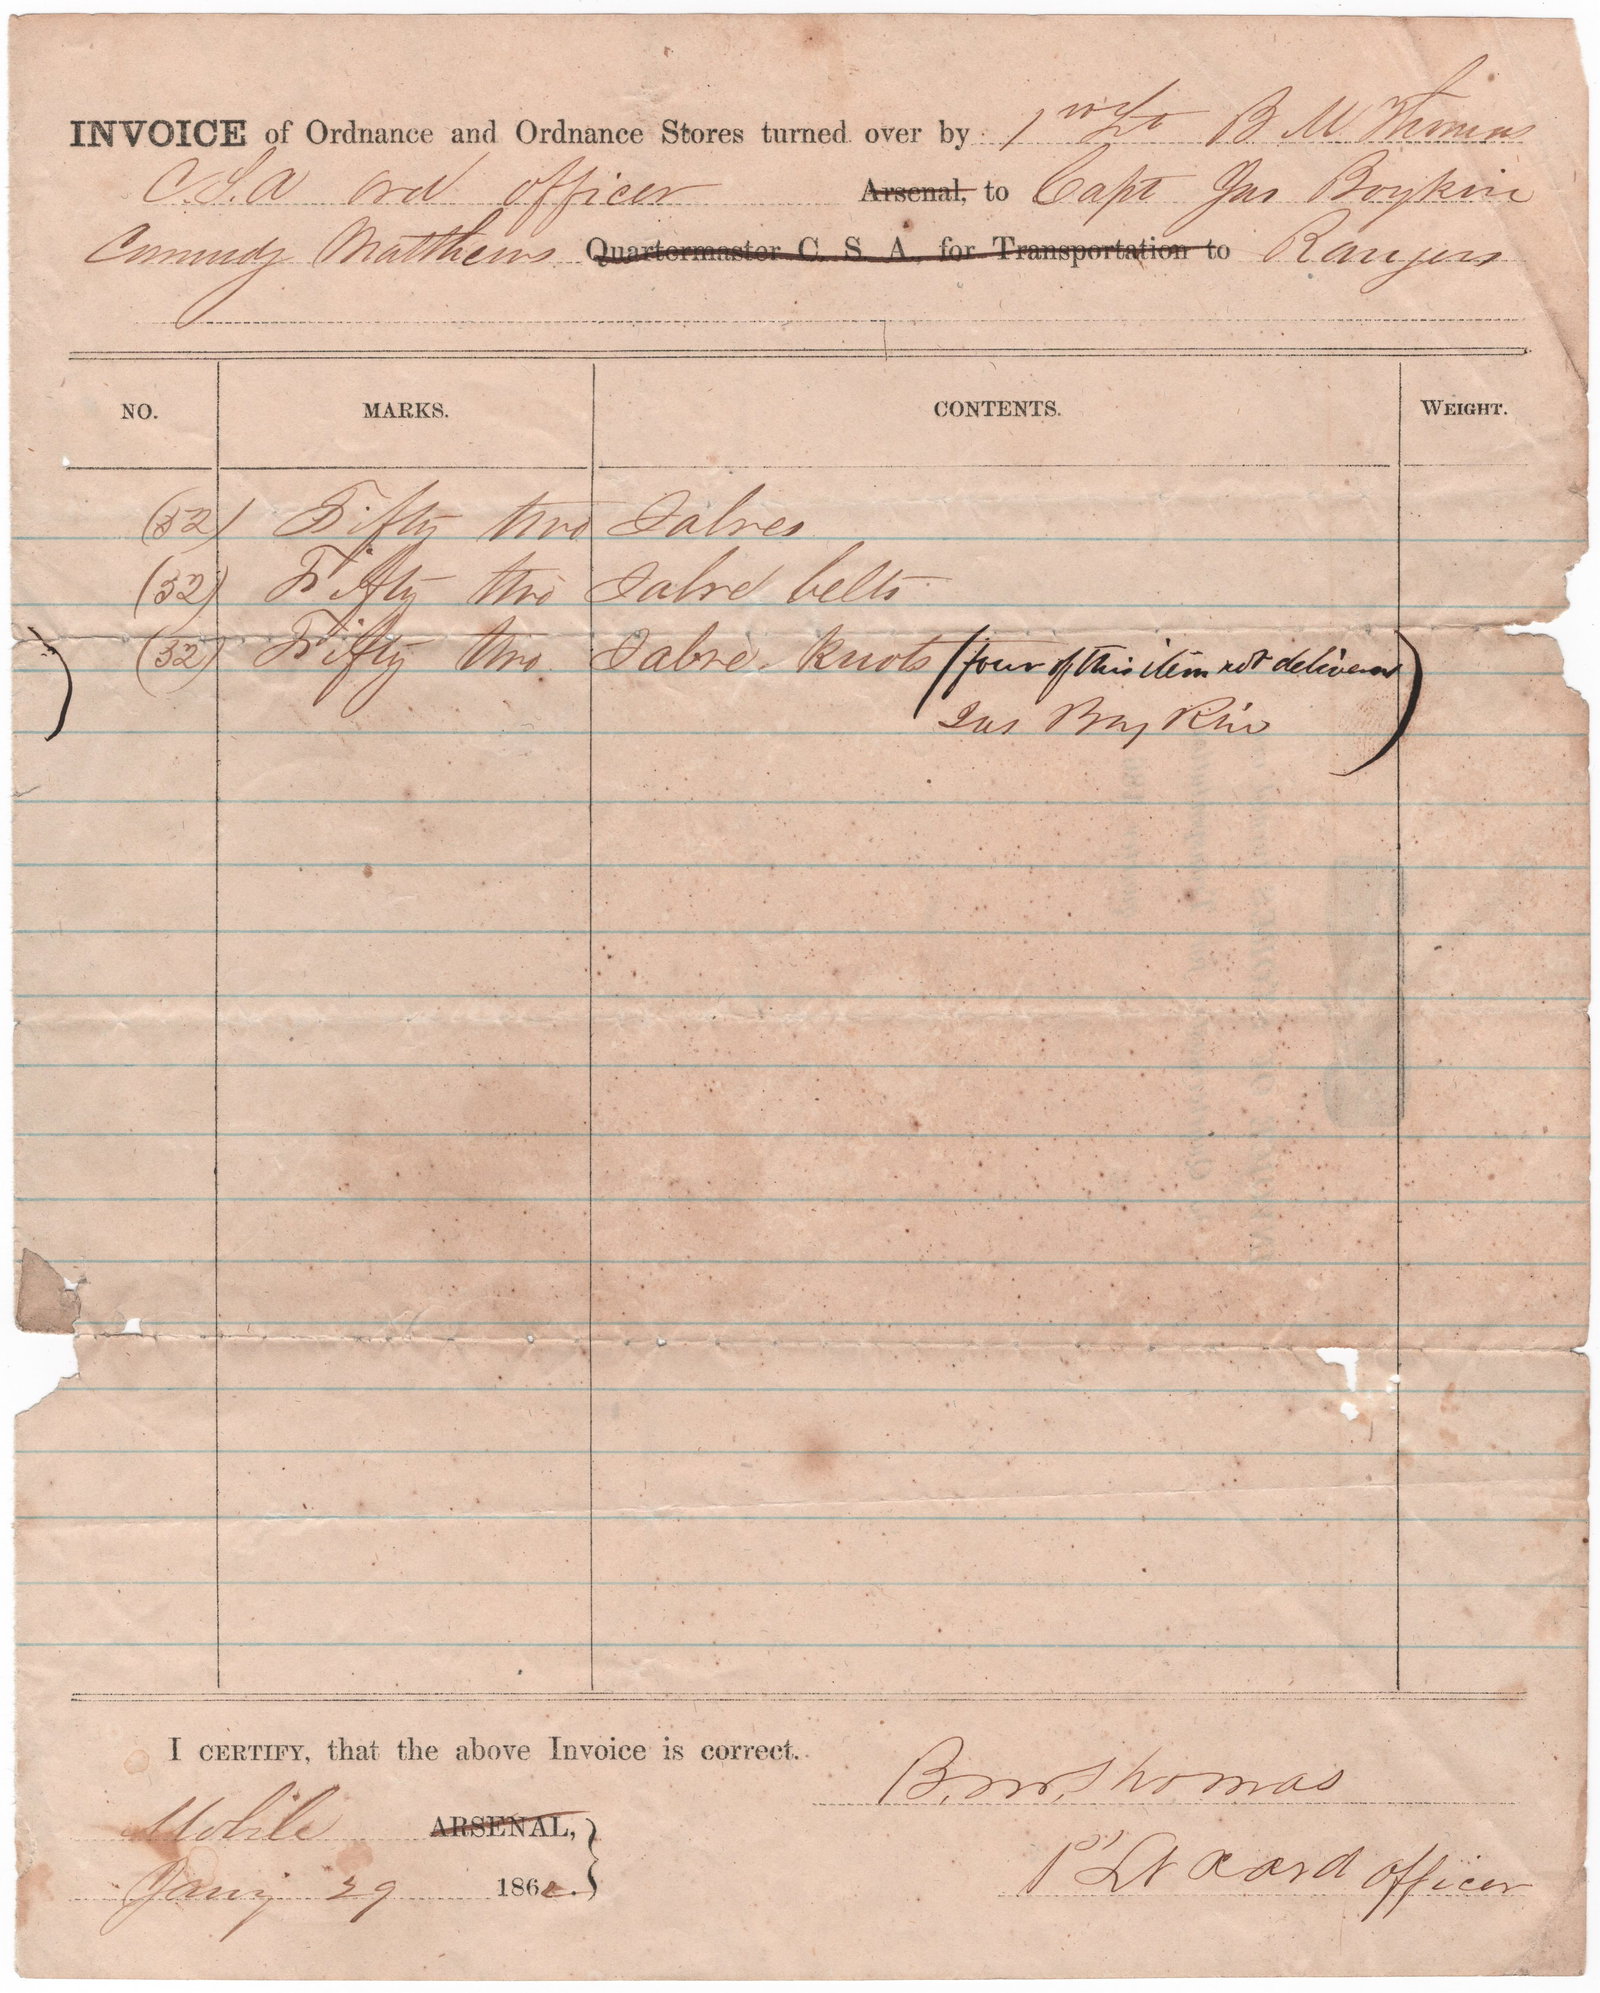 INVOICE of Ordnance and Ordnance Stores turned over by 1st Lt B. M. Thomas
C.S.A ord officer Arsenal, to Capt Jas Boykin
Commdg Matthews Quartermaster C. S. A. for Transportation to Rangers
NO. MARKS. CONTENTS. WEIGHT.
(52) Fifty two Sabres
(52) Fifty two Sabre belts
(52) Fifty two Sabre knots (four of this item not delivered)
Jas Boykin
I CERTIFY, that the above Invoice is correct.
B. M. Thomas
Mobile ARSENAL,
1st Lt a ord officer
Jany 29 1862.